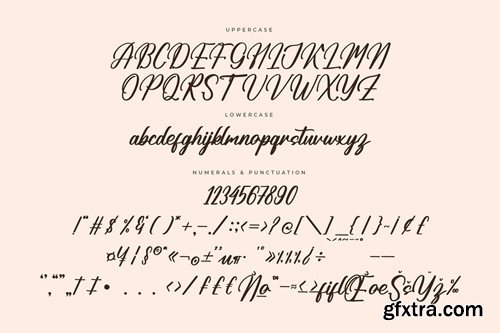 UPPERCASE
ABCDEFGHIJKLMN
OPQRSTUVWXYZ
LOWERCASE
abcdefghijklmnopqrstuvwxyz
NUMERALS & PUNCTUATION
1234567890
!"#$%&'()*+,-./:;<=>?@[\]_{|}~¢£
¤¥¦§¨©ª«¬®±²³µ¶·¸¹º»÷ – —
‘’‚“”„†‡•...‹›/£€
gfxtra.com